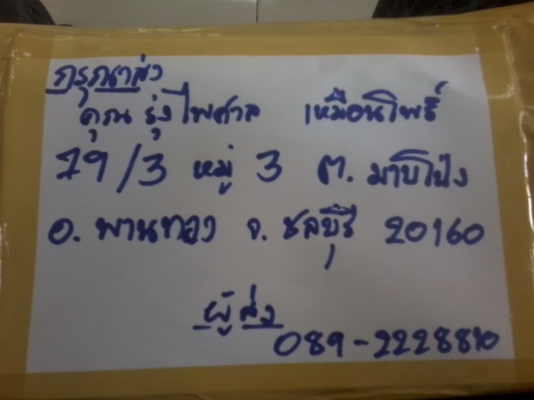 กรุณาส่ง
คุณ รุ่งไพศาล เหมือนโพธิ์
79/3 หมู่ 3 ต. มาบโป่ง
อ. พานทอง จ. ชลบุรี 20160
ผู้ส่ง
089-2228810